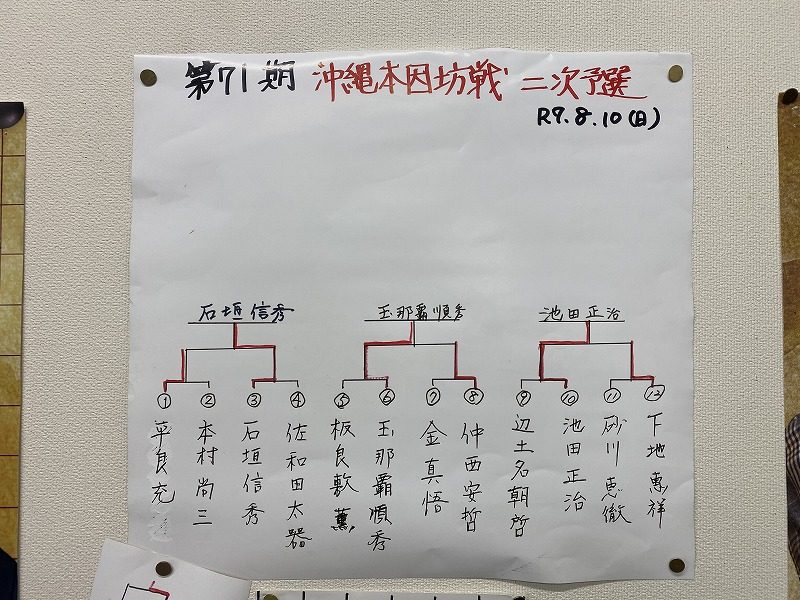 第71期 沖縄本因坊戦 二次予選
R7.8.10(日)
石垣信秀
玉那覇順秀
池田正治
① ② ③ ④ ⑤ ⑥ ⑦ ⑧ ⑨ ⑩ ⑪ ⑫
平良充
本村尚三
石垣信秀
佐和田太器
板良敷薫
玉那覇順秀
金真悟
仲西安哲
辺土名朝哲
池田正治
砂川恵徹
下地恵祥